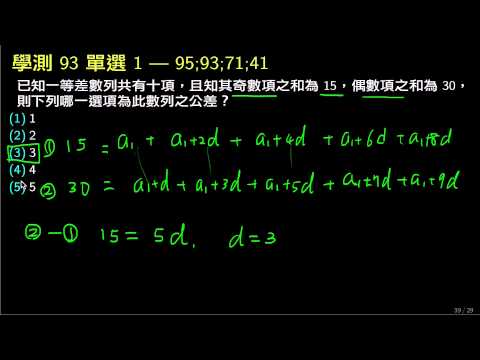 學測 93 單選 1 — 95;93;71;41
已知一等差數列共有十項，且知其奇數項之和為 15，偶數項之和為 30，
則下列哪一選項為此數列之公差？
(1) 1
(2) 2
(3) 3
(4) 4
(5) 5
① 15 = a₁ + a₁+2d + a₁+4d + a₁+6d + a₁+8d
② 30 = a₁+d + a₁+3d + a₁+5d + a₁+7d + a₁+9d
② − ① 15 = 5d, d = 3
39 / 29